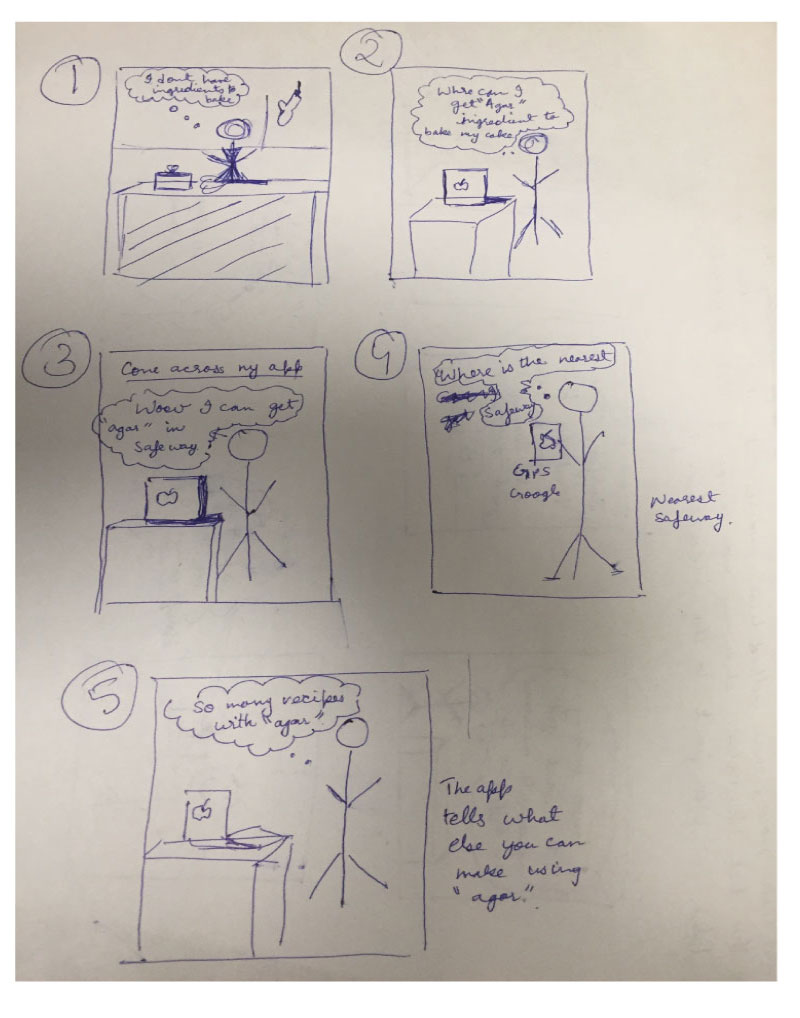 1
I dont have
ingredients to
bake
2
Whre can I
get "Agar"
ingredient to
bake my cake
3
Come across my app
Woow I can get
"agar" in
Safeway
4
Where is the nearest
Safeway
GPS
Google
Nearest
Safeway.
5
So many recipes
with "agar"
The app
tells what
else you can
make using
"agar."